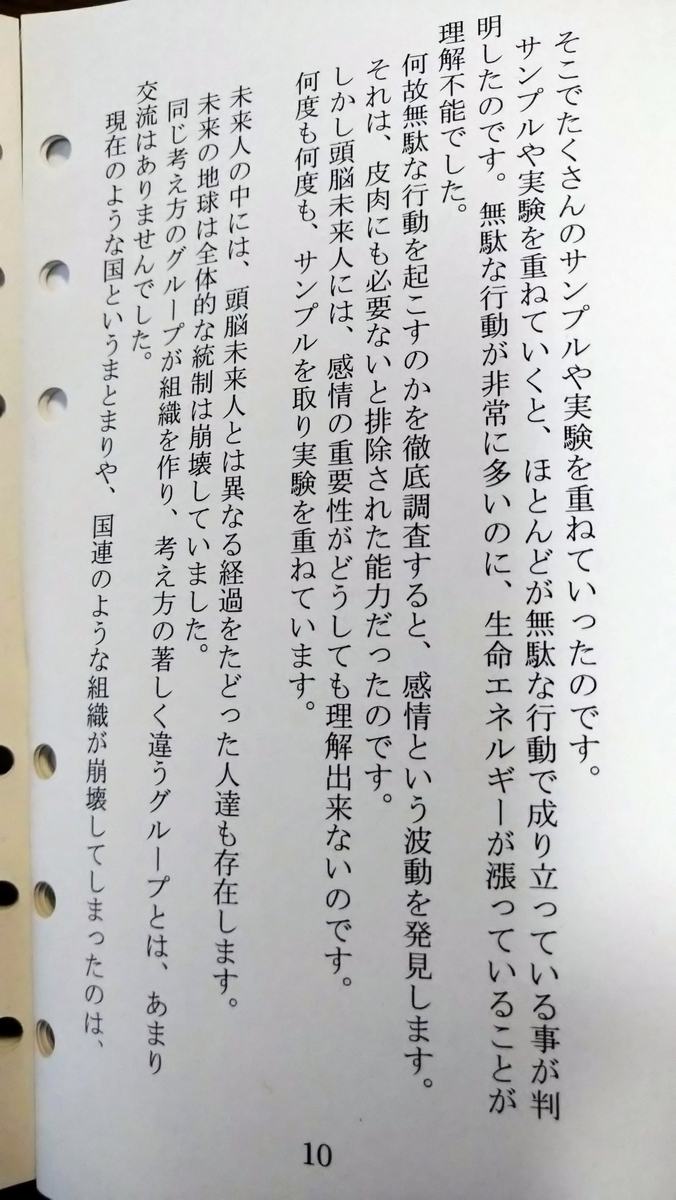 そこでたくさんのサンプルや実験を重ねていったのです。
サンプルや実験を重ねていくと、ほとんどが無駄な行動で成り立っている事が判
明したのです。無駄な行動が非常に多いのに、生命エネルギーが漲っていることが
理解不能でした。
何故無駄な行動を起こすのかを徹底調査すると、感情という波動を発見します。
それは、皮肉にも必要ないと排除された能力だったのです。
しかし頭脳未来人には、感情の重要性がどうしても理解出来ないのです。
何度も何度も、サンプルを取り実験を重ねています。
未来人の中には、頭脳未来人とは異なる経過をたどった人達も存在します。
未来の地球は全体的な統制は崩壊していました。
同じ考え方のグループが組織を作り、考え方の著しく違うグループとは、あまり
交流はありませんでした。
現在のような国というまとまりや、国連のような組織が崩壊してしまったのは、
10